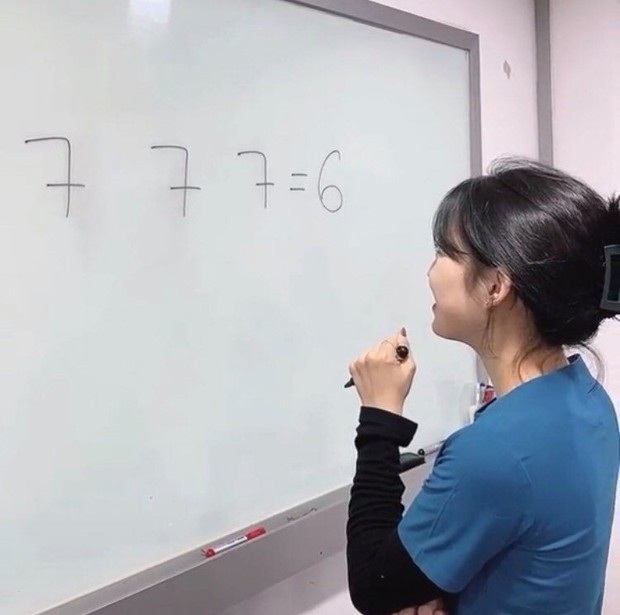 7 7 7=6